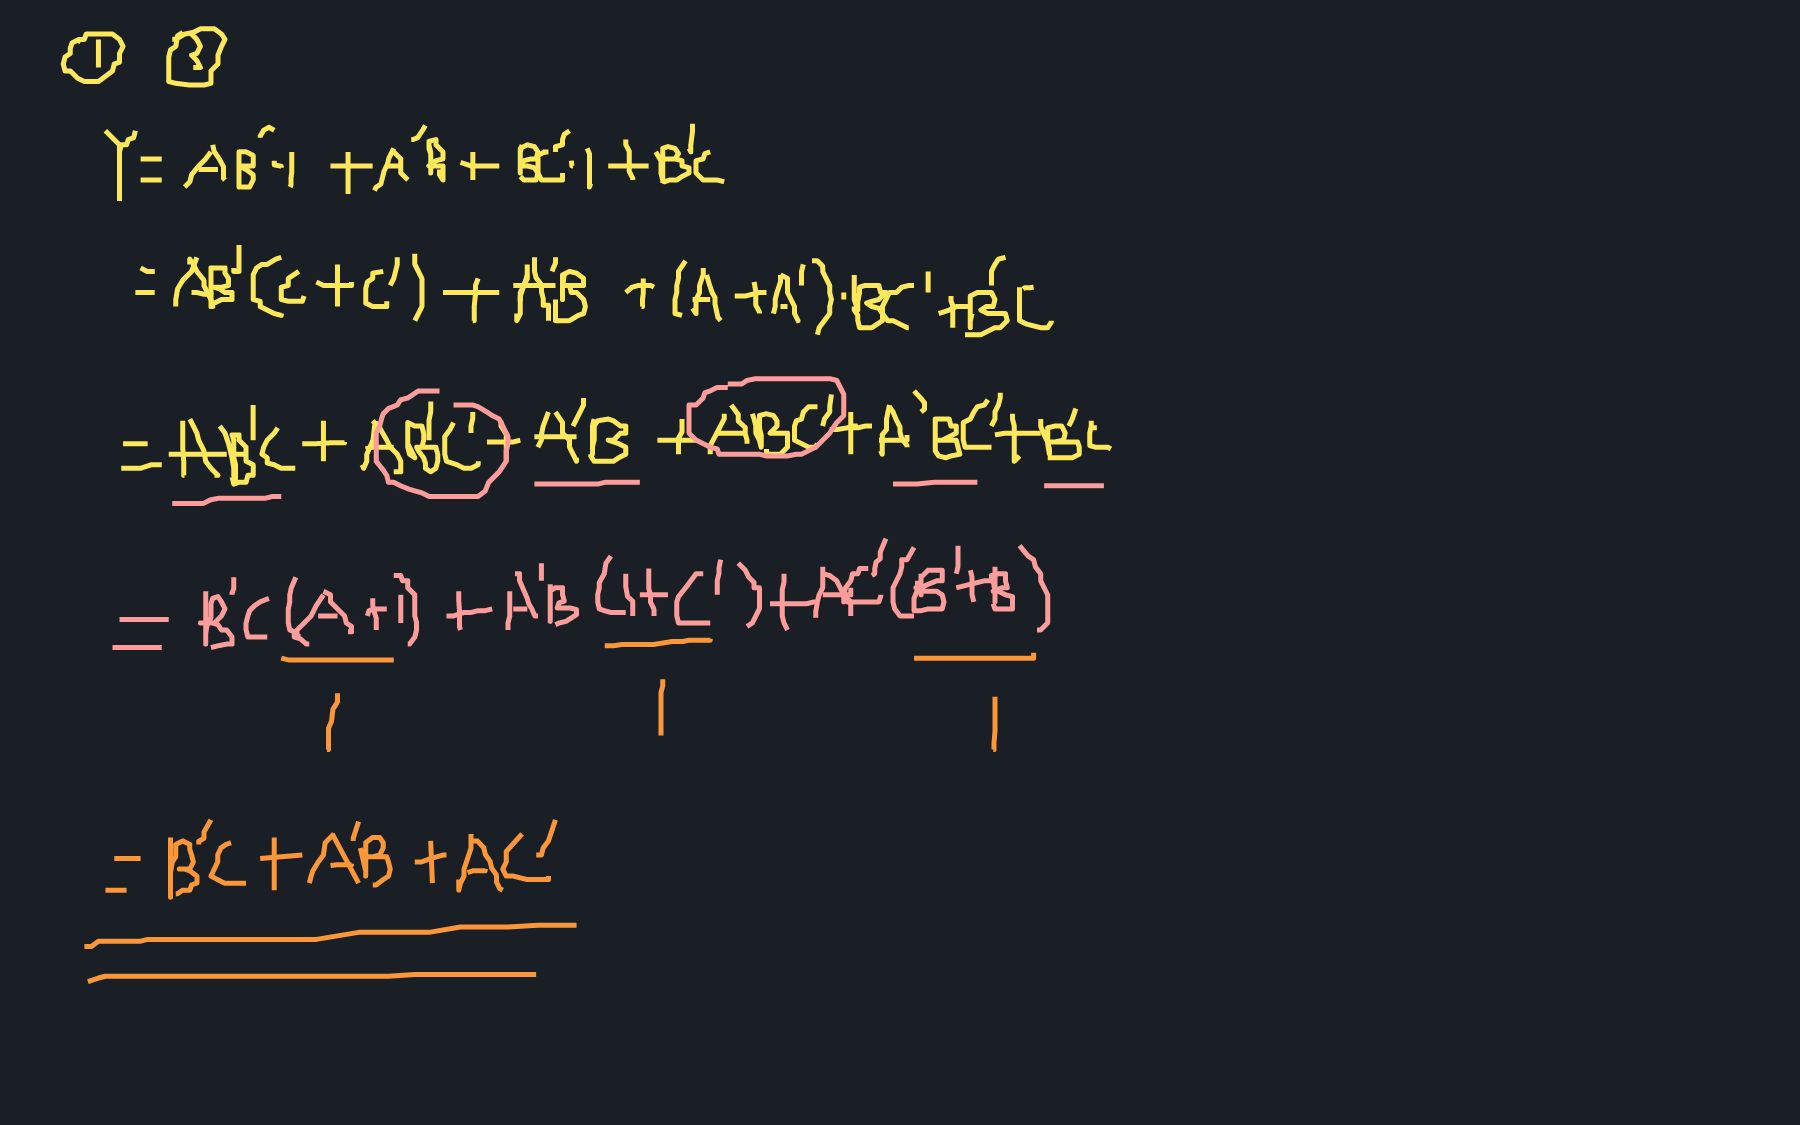 ① ③
Y = AB'·1 + A'B + BC'·1 + B'C
= AB'(C + C') + A'B + (A + A')·BC' + B'C
= AB'C + AB'C' + A'B + ABC' + A'BC' + B'C
= B'C(A+1) + A'B(1+C') + AC'(B'+B)
1 1 1
= B'C + A'B + AC'